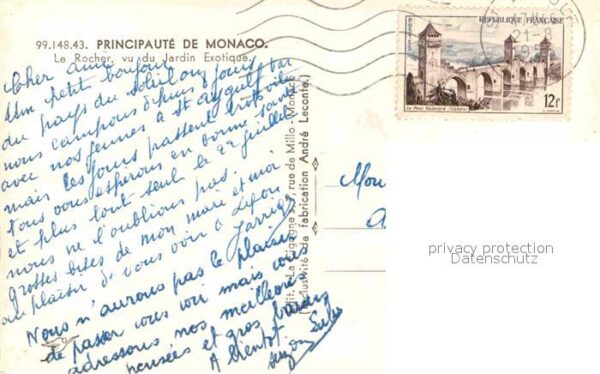 99.148.43. PRINCIPAUTÉ DE MONACO.
Le Rocher, vu du Jardin Exotique.
Cher ami
Un petit bonjour
du pays du soleil ou
nous campons depuis 8 jours
avec nos femmes à St Aygulf
mais les jours passent trop vite
tous vous esperons en bonne santé
et plus tout seul le 22 juillet
nous ne l'oublions pas.
Grosses bises de mon mari et moi
au plaisir de vous voir à Lyon
Nous n'aurons pas le plaisir
de passer vous voir mais vous
adressons nos meilleures
pensées et gros baisers
A bientôt.
Édit. "La Cigogne", rue de Millo (Monaco)
(Exclusivité de fabrication André Leconte)
REPUBLIQUE FRANÇAISE
POSTES
Le Pont Valentré (Cahors)
12f
21-8
19
Mon
privacy protection
Datenschutz